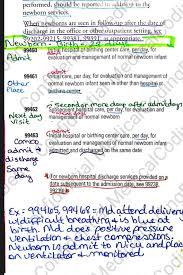 performed, should be reported in addition to the
newborn services.
When newborns are seen in follow-up after the date of
discharge in the office or other outpatient setting, see
99202-99215, 99381, 99391, as appropriate.
Newborn - Birth - 28 days
99460
hospital or birthing center care, per day, for
evaluation and management of normal newborn infant
admit
99461
Initial care, per day, for evaluation and management of
normal newborn infant seen in other than hospital or
birthing center
Other
Place
99462
Subsequent hospital care, per day, for evaluation and
management of normal newborn
Next day
visit
99463
Initial hospital or birthing center care, per day, for
evaluation and management of normal newborn infant
admitted and discharged on the same date
admit &
discharge
Same
day
For newborn hospital discharge services provided on a
date subsequent to the admission date, see 99238,
99239
Ex: 99465, 99468 = Md attend delivery
w/ difficult breathing & is blue at
birth. Md does positive pressure
ventilation & chest compressions.
Newborn is admit to Nicu and place
on ventilator & monitored.